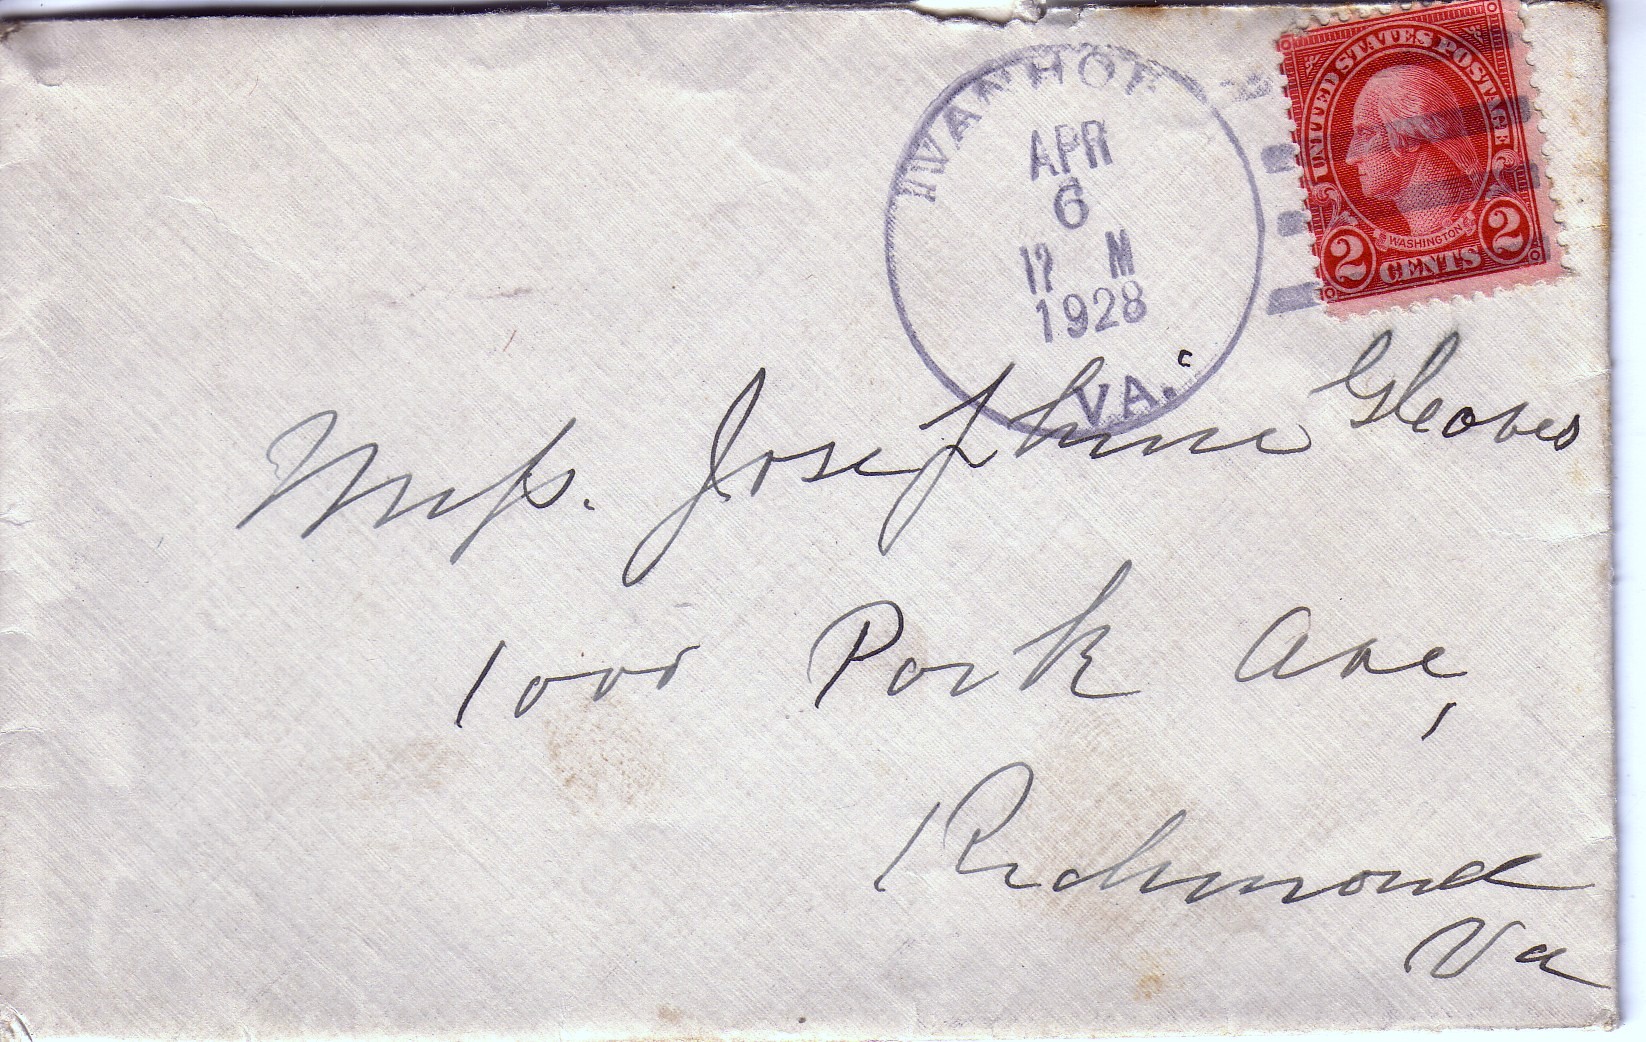 IVANHOE
APR
6
12 M
1928
VA.
UNITED STATES POSTAGE
WASHINGTON
2 CENTS 2
Miss. Josephine Gleaves
1000 Park Ave,
Richmond
Va